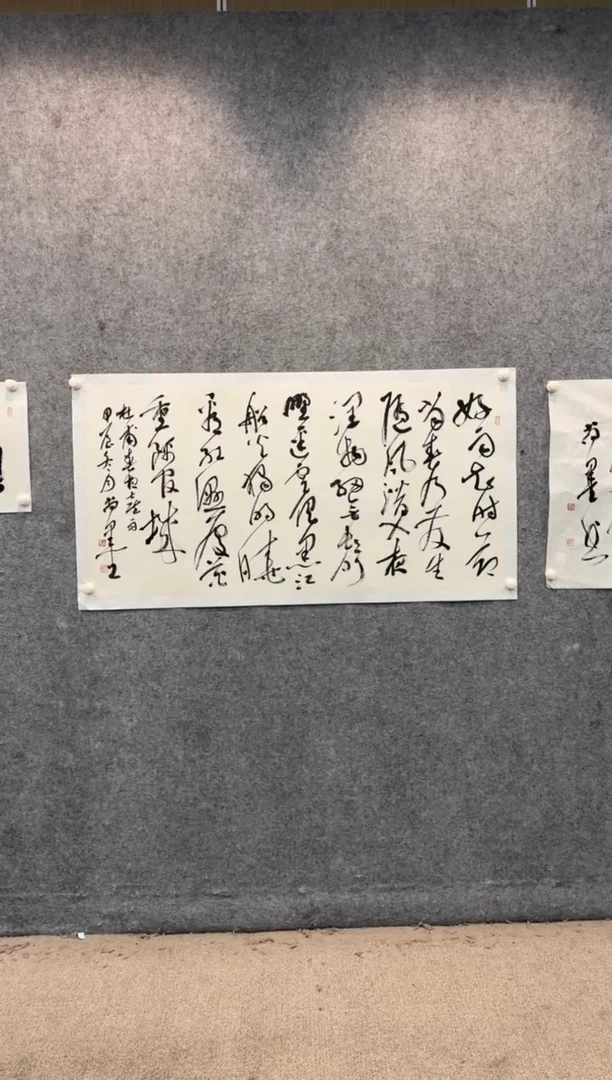 好雨知时节
当春乃发生
随风潜入夜
润物细无声
野径云俱黑江
船火独明晓
看红湿处花
重锦官城
杜甫春夜喜雨
甲辰冬月